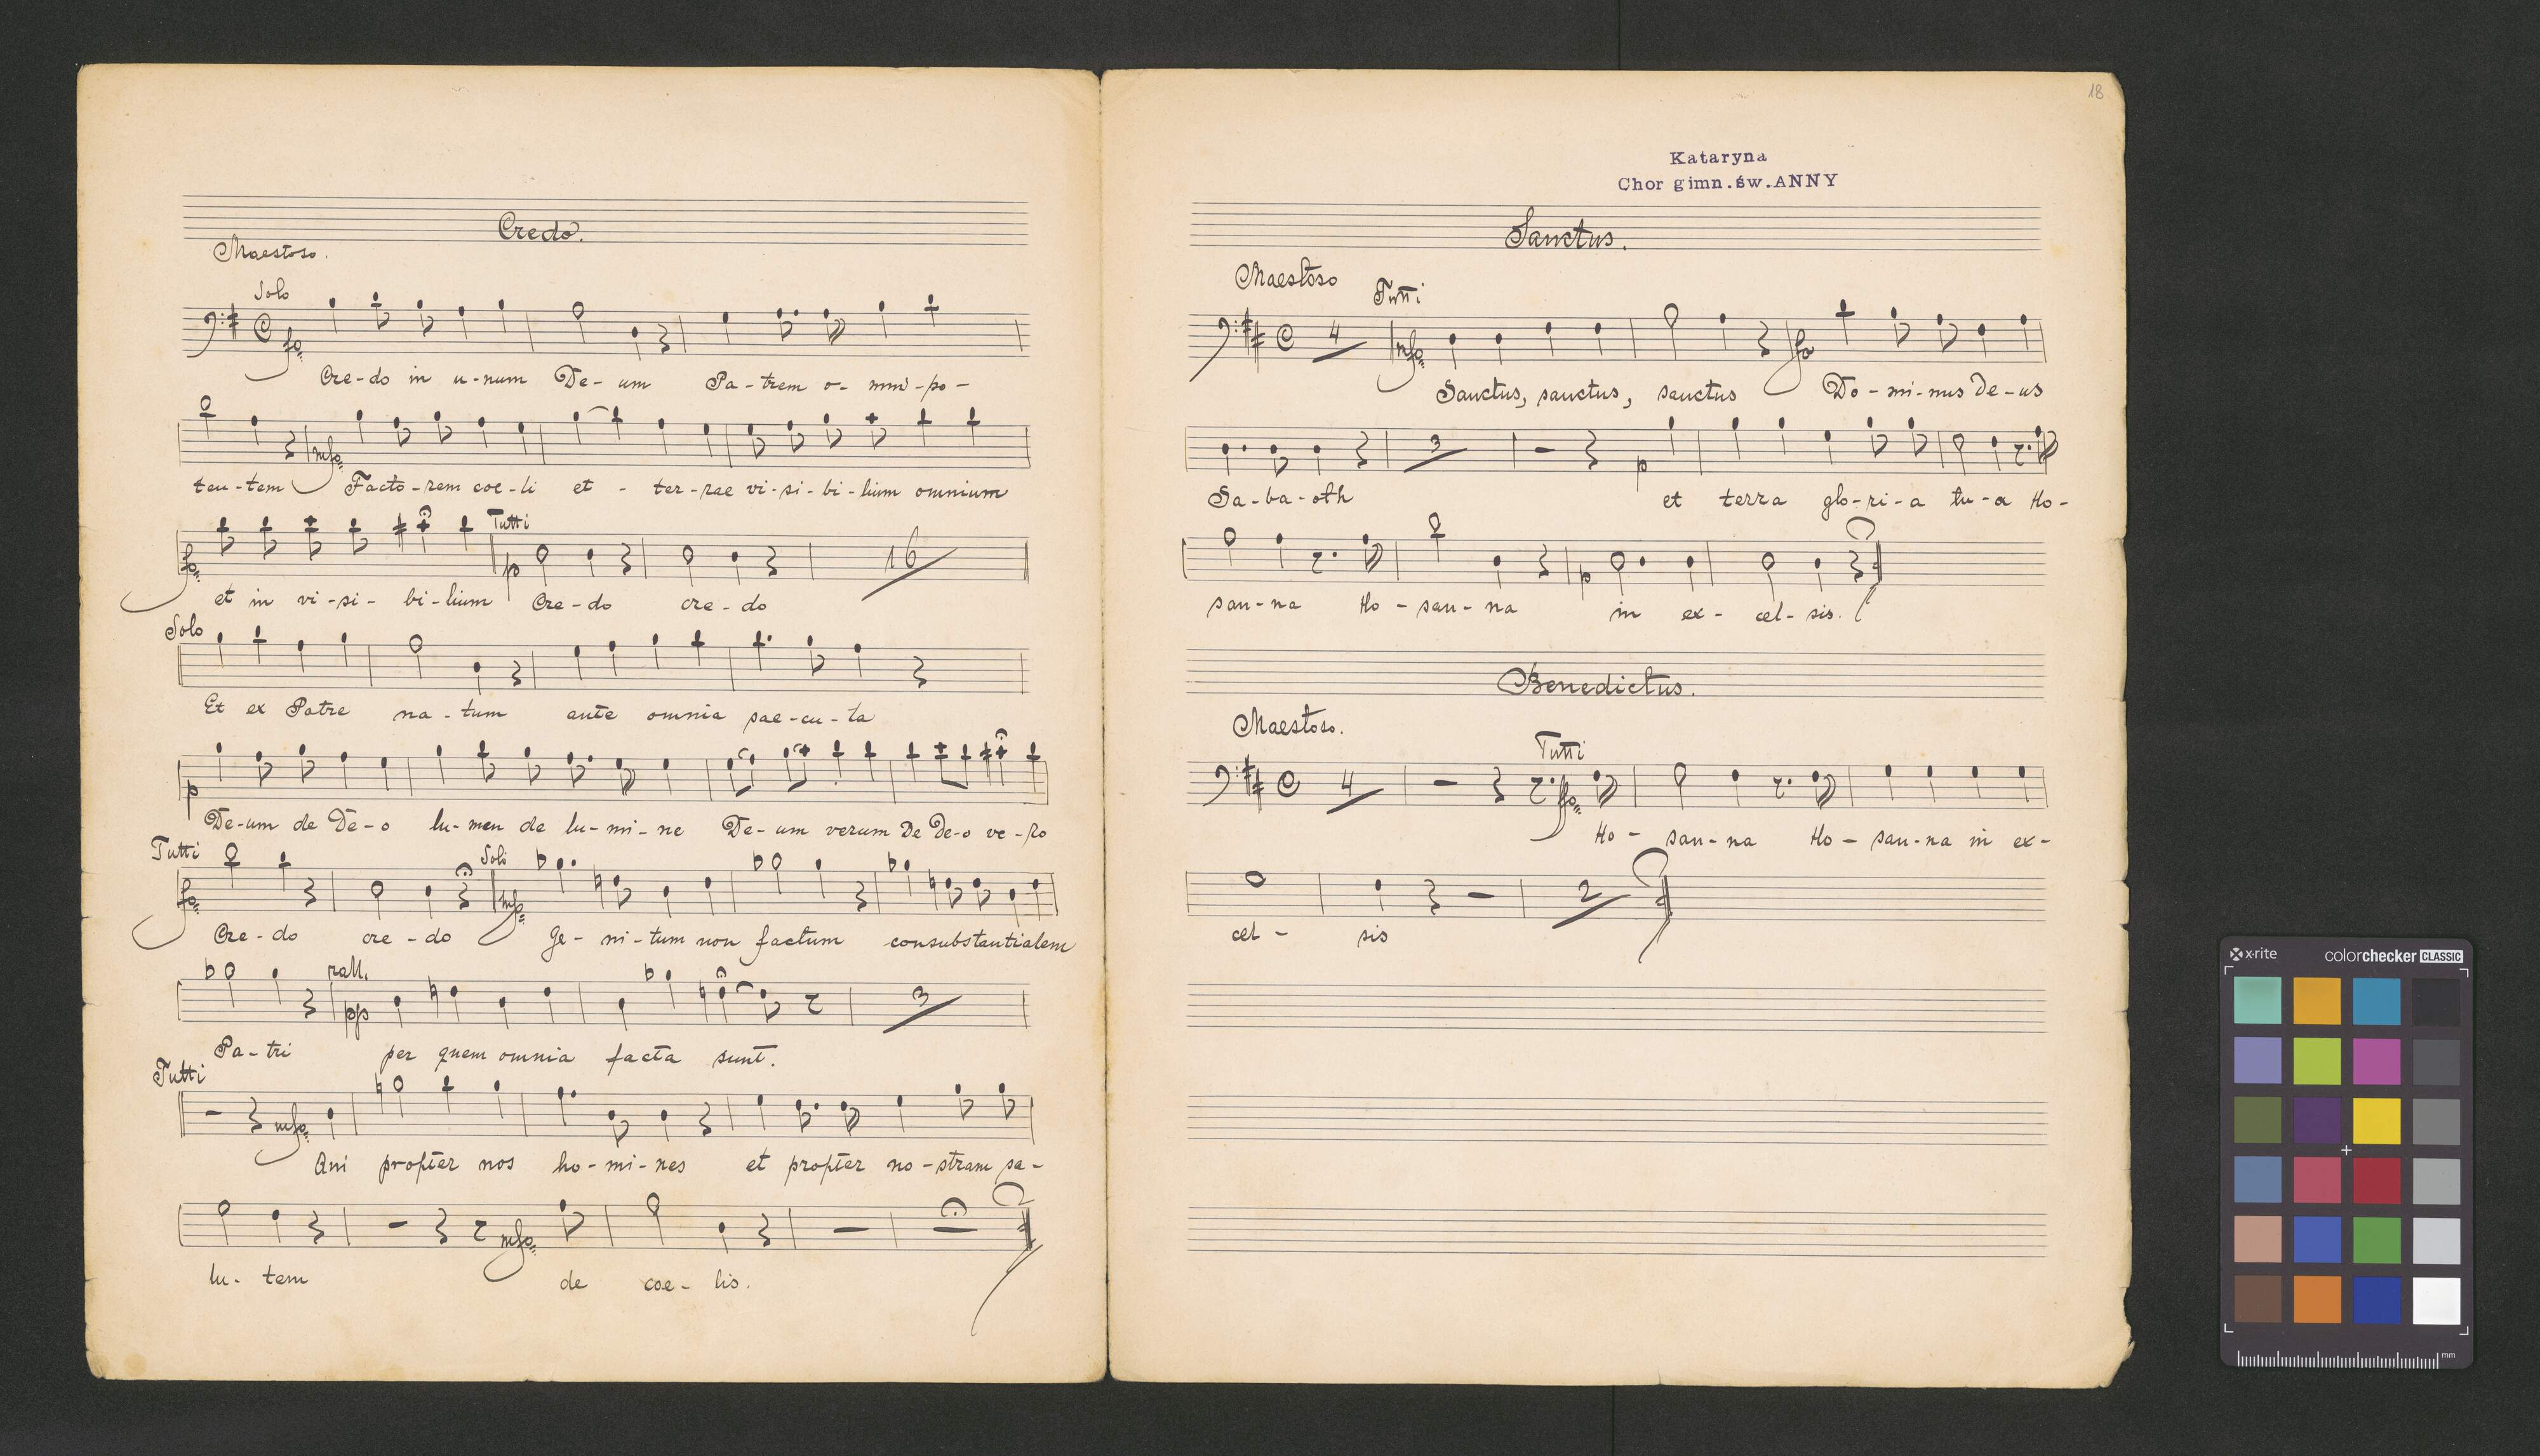 Credo.
Maestoso.
Solo
fo.
Cre-do in u-num De-um Pa-trem o-mni-po-
mfo.
ten-tem Facto-rem coe-li et - ter-rae vi-si-bi-lium omnium
Tutti
fo. p 16
et in vi-si-bi-lium Cre-do cre-do
Solo
Et ex Patre na-tum ante omnia sae-cu-la
p
De-um de De-o lu-men de lu-mi-ne De-um verum De De-o ve-ro
Tutti Soli
fo. mfo.
Cre-do cre-do Ge-ni-tum non factum consubstantialem
rall.
pp 3
Pa-tri per quem omnia facta sunt.
Tutti
mfo.
Qui propter nos ho-mi-nes et propter no-stram sa-
mfo.
lu-tem de coe-lis.
18
Kataryna
Chor gimn.św.ANNY
Sanctus.
Maestoso Tutti
4 mfo. fo
Sanctus, sanctus, sanctus Do-mi-nus De-us
3 p
Sa-ba-oth et terra glo-ri-a tu-a Ho-
p
san-na Ho-san-na in ex-cel-sis.
Benedictus.
Maestoso.
Tutti
4 fo.
Ho-san-na Ho-san-na in ex-
2
cel-sis
x-rite colorchecker CLASSIC
mm